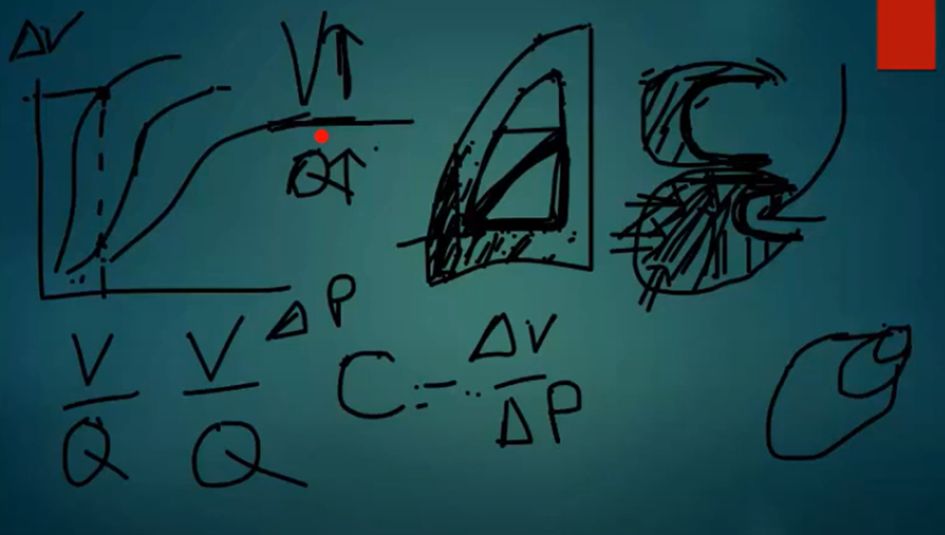 ΔV
V↑
Q↑
ΔP
V/Q V/Q C = ΔV/ΔP